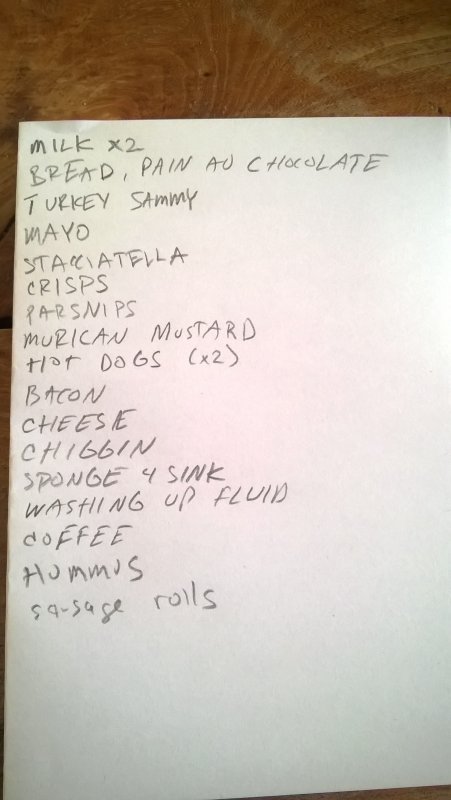 MILK x2
BREAD, PAIN AU CHOCOLATE
TURKEY SAMMY
MAYO
STACCIATELLA
CRISPS
PARSNIPS
MURICAN MUSTARD
HOT DOGS (x2)
BACON
CHEESE
CHIGGIN
SPONGE 4 SINK
WASHING UP FLUID
COFFEE
HUMMUS
sausage rolls